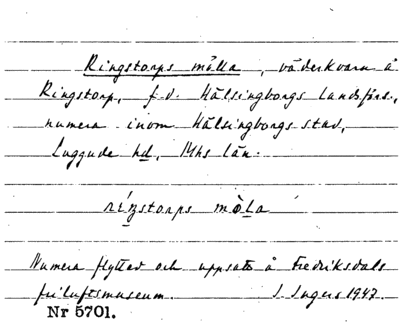 Ringstorps mölla, väderkvarn å
Ringstorp, f.d. Hälsingborgs landsförs.,
numera inom Hälsingborgs stad,
Luggude hd, Mhs län.
ríŋstorps mòla
Numera flyttad och uppsatt å Fredriksdals
friluftsmuseum. I. Ingers 1947.
Nr 5701.